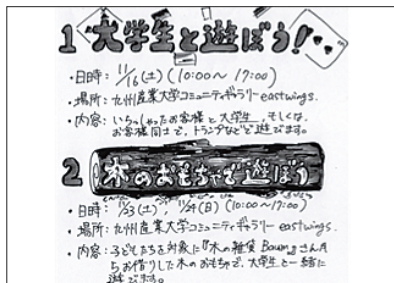 1 大学生と遊ぼう!
・日時：11/16(土)(10:00~17:00)
・場所：九州産業大学コミュニティギャラリーeastwings.
・内容：いらっしゃったお客様と大学生、もしくは、
お客様同士で、トランプなどで遊びます。
2 木のおもちゃで遊ぼう
・日時：11/23(土)、11/24(日)(10:00~17:00)
・場所：九州産業大学コミュニティギャラリーeastwings.
・内容：子どもたちを対象に『木の雑貨Baum』さんか
らお借りした木のおもちゃで、大学生と一緒に
遊びます。